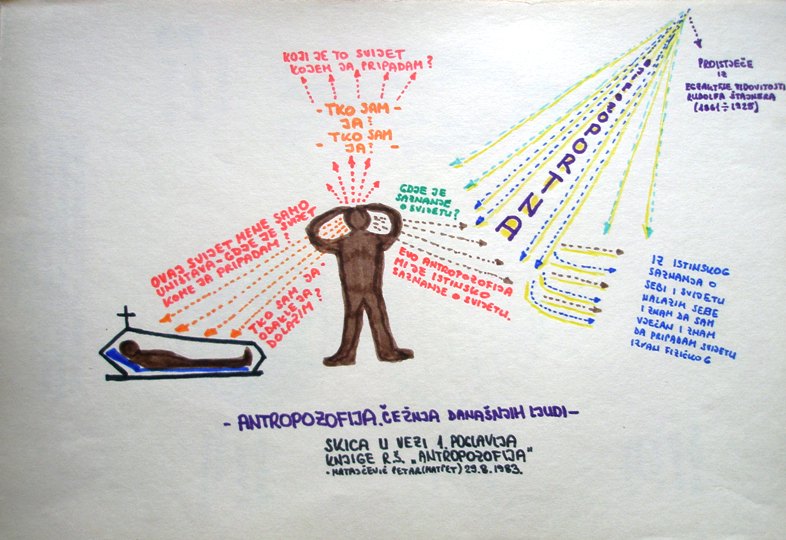 KOJI JE TO SVIJET
KOJEM JA PRIPADAM?
- TKO SAM -
JA?
- TKO SAM -
JA?
PROISTJEČE
IZ
EGZAKTNE VIDOVITOSTI
RUDOLFA ŠTAJNERA
(1861÷1925)
ANTROPOZOFIJA
GDJE JE
SAZNANJE
O SVIJETU?
OVAJ SVIJET MENE SAMO
UNIŠTAVA - GDJE JE SVIJET
KOME JA PRIPADAM?
TKO SAM JA
ODAKLE JA
DOLAZIM?
EVO ANTROPOZOFIJA
MI JE ISTINSKO
SAZNANJE O SVIJETU.
IZ ISTINSKOG
SAZNANJA O
SEBI I SVIJETU
NALAZIM SEBE
I ZNAM DA SAM
VJEČAN I ZNAM
DA PRIPADAM SVIJETU
IZVAN FIZIČKOG
- ANTROPOZOFIJA. ČEŽNJA DANAŠNJIH LJUDI -
SKICA U VEZI 1. POGLAVLJA
KNJIGE R.Š. „ANTROPOZOFIJA"
- MATAJČEVIĆ PETAR (MATPET) 29.8.1983.